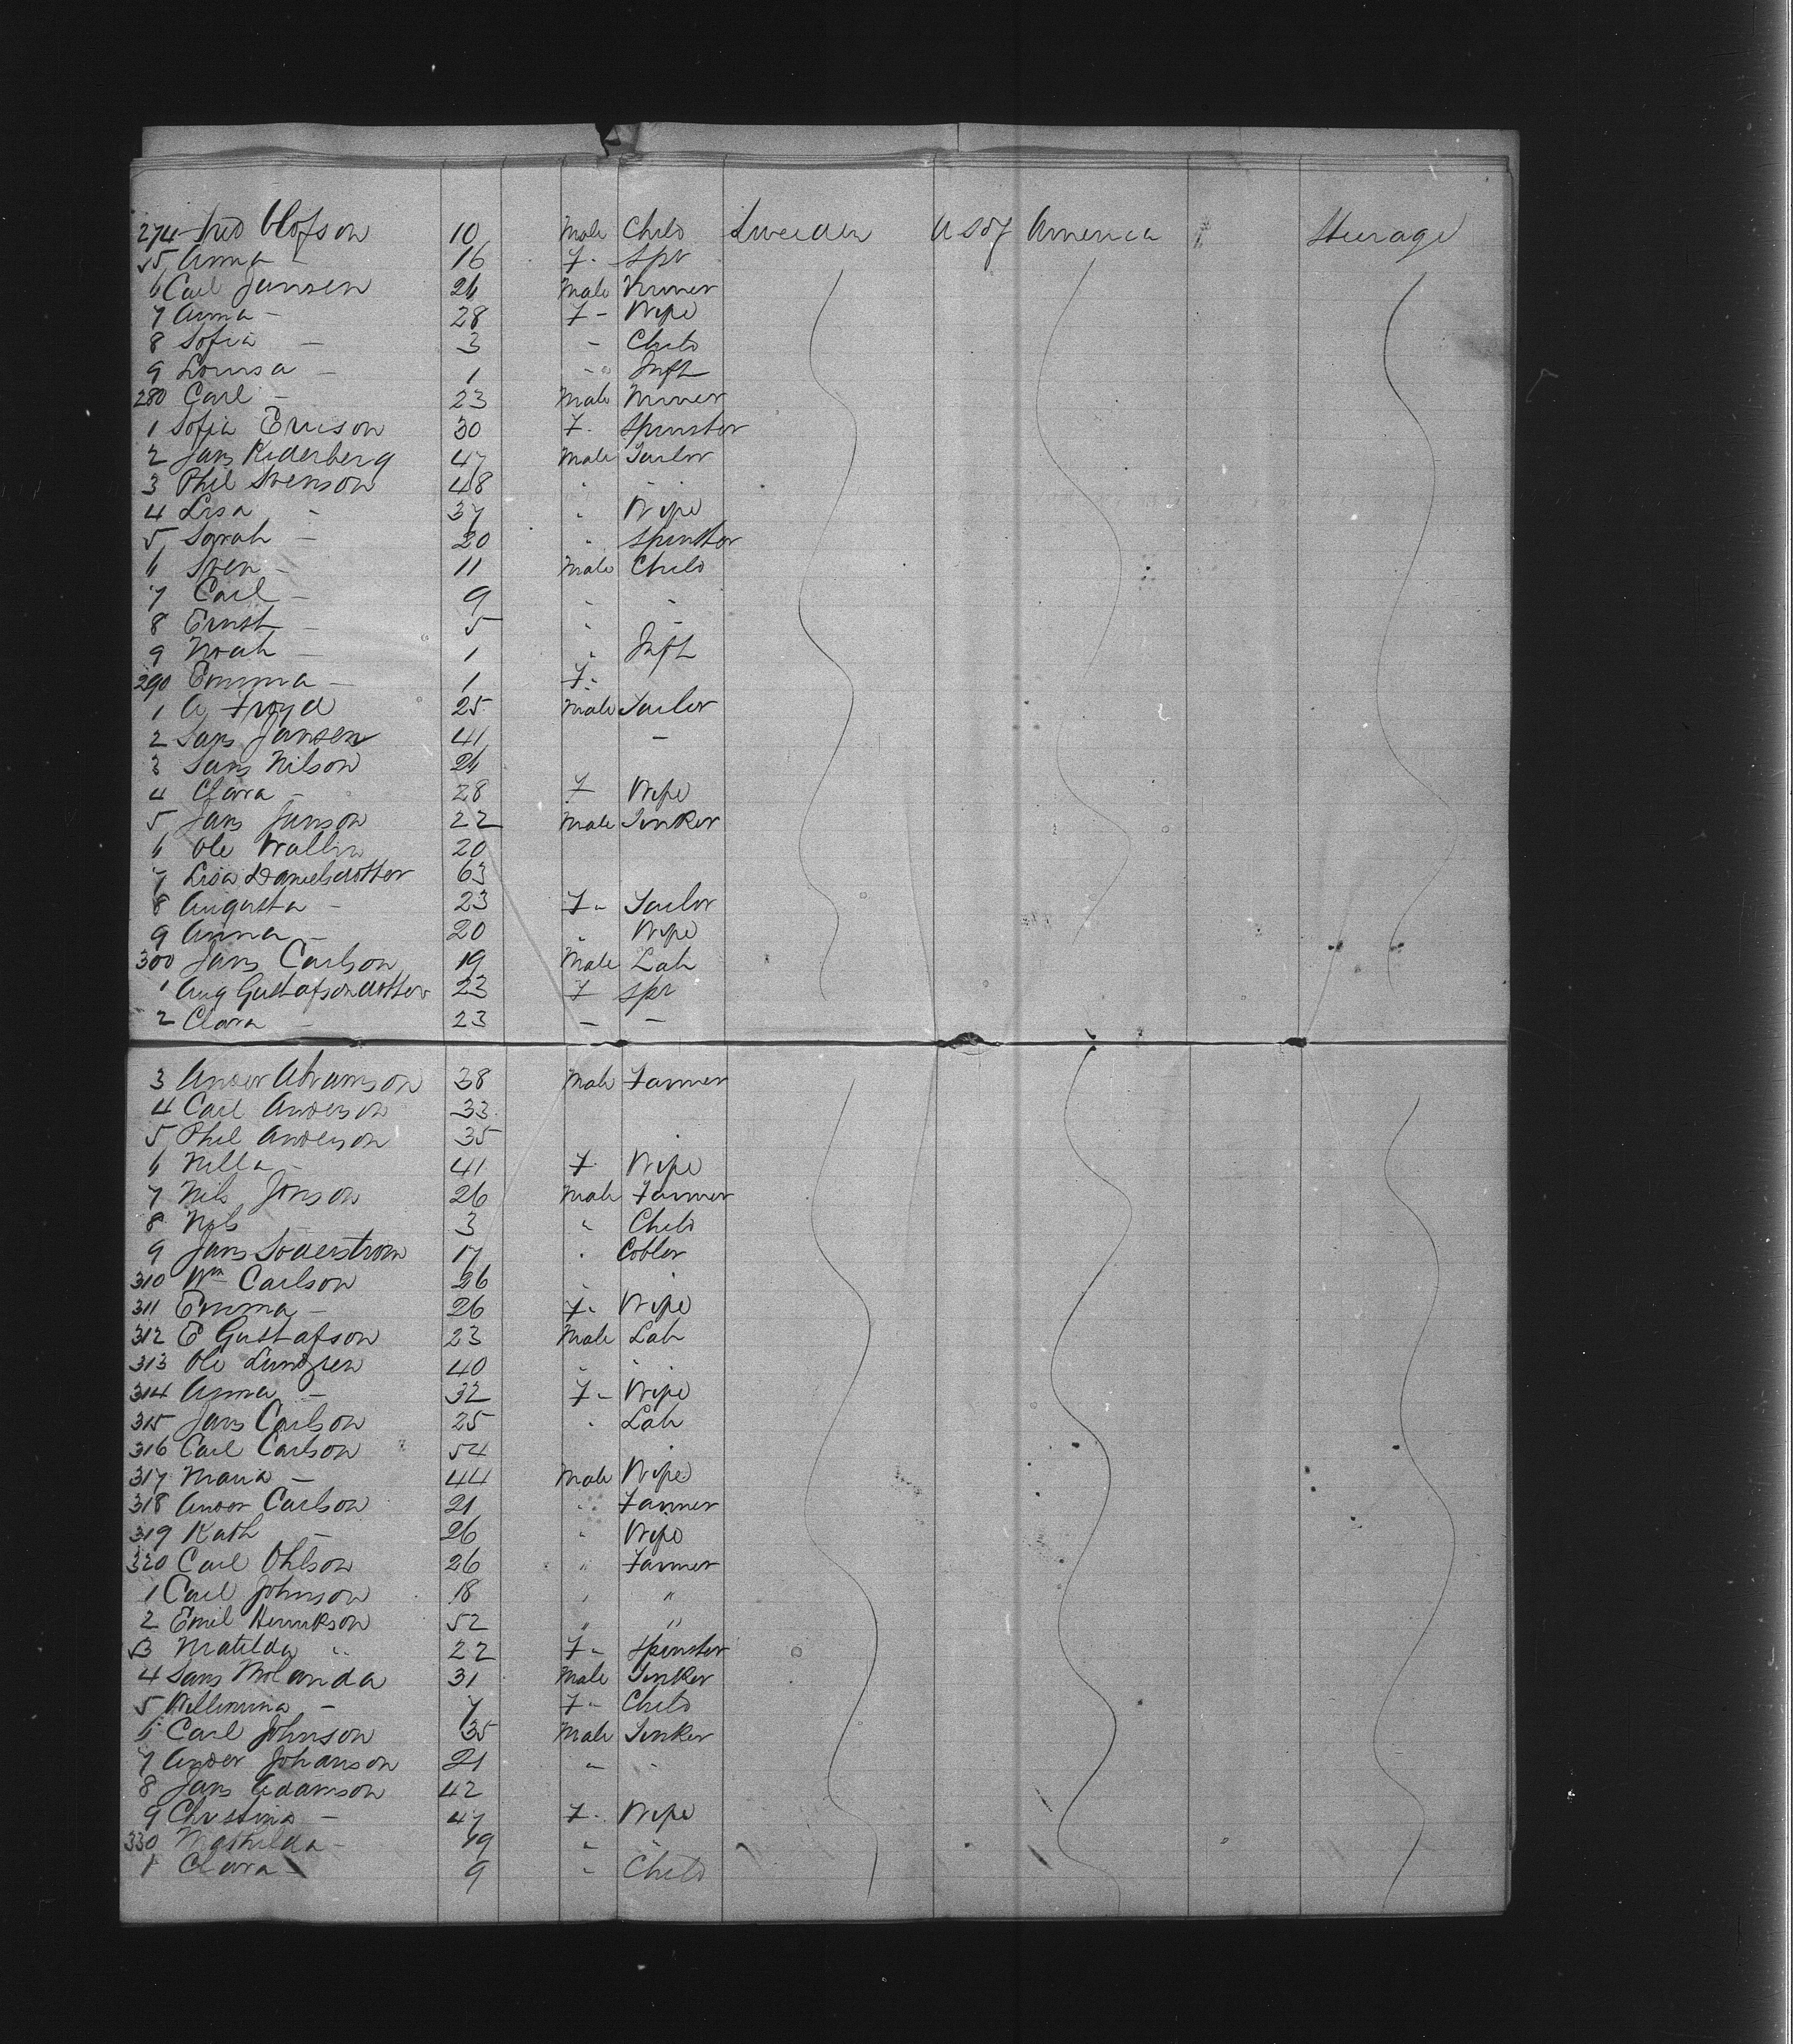 274 Fred Olofson 10 Male Child Sweden U S of America Steerage
5 Anna - 16 F. Spr
6 Carl Jansen 26 Male Miner
7 Anna - 28 F - Wife
8 Sofia - 3 - Child
9 Lovisa - 1 - " Inft
280 Carl - 23 Male Miner
1 Sofia Ericson 30 F. Spinster
2 Jans Rederberg 47 Male Tailor
3 Phil Svenson 48 " "
4 Lisa - 37 " Wife
5 Sarah - 20 " Spinster
6 Sven - 11 Male Child
7 Carl - 9 " "
8 Ernst - 5 "
9 Noah - 1 " Inft
290 Emma - 1 F.
1 A Froyd 25 Male Tailor
2 Lars Jansen 41 -
3 Lars Nilson 26
4 Clara - 28 F Wife
5 Jans Janson 22 Male Tinker
6 Ole Wallin 20
7 Lisa Danielsdotter 63
8 Augusta - 23 F - Tailor
9 Anna - 20 " Wife
300 Jans Carlson 19 Male Lab
1 Aug Gustafsondotter 23 F Spr
2 Clara - 23 - -
3 Ander Abramson 38 Male Farmer
4 Carl Anderson 33
5 Phil Anderson 35 "
6 Nilla - 41 F. Wife
7 Nils Jonson 26 Male Farmer
8 Nils 3 " Child
9 Jans Soderstrom 17 " Cobler
310 Wm Carlson 26 " "
311 Emma - 26 F. Wife
312 E Gustafson 23 Male Lab
313 Ole Lundgren 40 " "
314 Anna - 32 F - Wife
315 Jans Carlson 25 " Lab
316 Carl Carlson 54 "
317 Maria - 44 Male Wife
318 Ander Carlson 21 " Farmer
319 Kath - 26 " Wife
320 Carl Ohlson 26 " Farmer
1 Carl Johnson 18 " "
2 Emil Henrikson 52 " "
3 Matilda " 22 F - Spinster
4 Lars Molanda 31 Male Tinker
5 Willimina - 7 F - Child
6 Carl Johnson 35 Male Tinker
7 Ander Johanson 21 " "
8 Jans Adamson 42
9 Christina - 47 F. Wife
330 Mathilda - 19 " "
1 Clara - 9 " Child